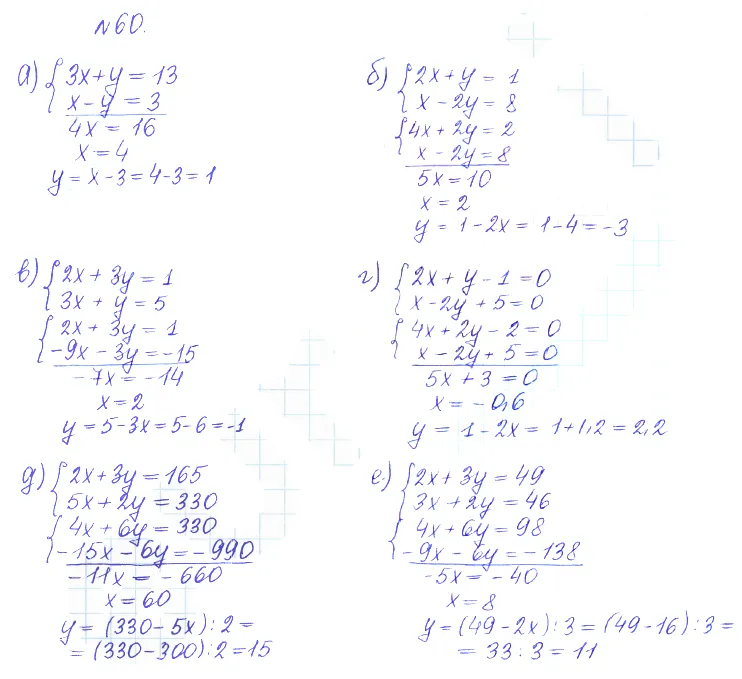 №60.
а) { 3x+y = 13
x-y = 3
4x = 16
x=4
y = x-3=4-3=1
б) { 2x+y = 1
x-2y=8
{ 4x+2y=2
x-2y=8
5x=10
x=2
y = 1-2x = 1-4=-3
в) { 2x+3y=1
3x+y=5
{ 2x+3y=1
-9x-3y=-15
-7x=-14
x=2
y=5-3x=5-6=-1
г) { 2x+y-1=0
x-2y+5=0
{ 4x+2y-2=0
x-2y+5=0
5x+3=0
x=-0,6
y = 1-2x= 1+1,2=2,2
д) { 2x+3y=165
5x+2y=330
{ 4x+6y=330
-15x-6y=-990
-11x=-660
x=60
y = (330-5x):2=
=(330-300):2=15
е) { 2x+3y=49
3x+2y=46
{ 4x+6y=98
-9x-6y=-138
-5x=-40
x=8
y=(49-2x):3=(49-16):3=
= 33:3=11